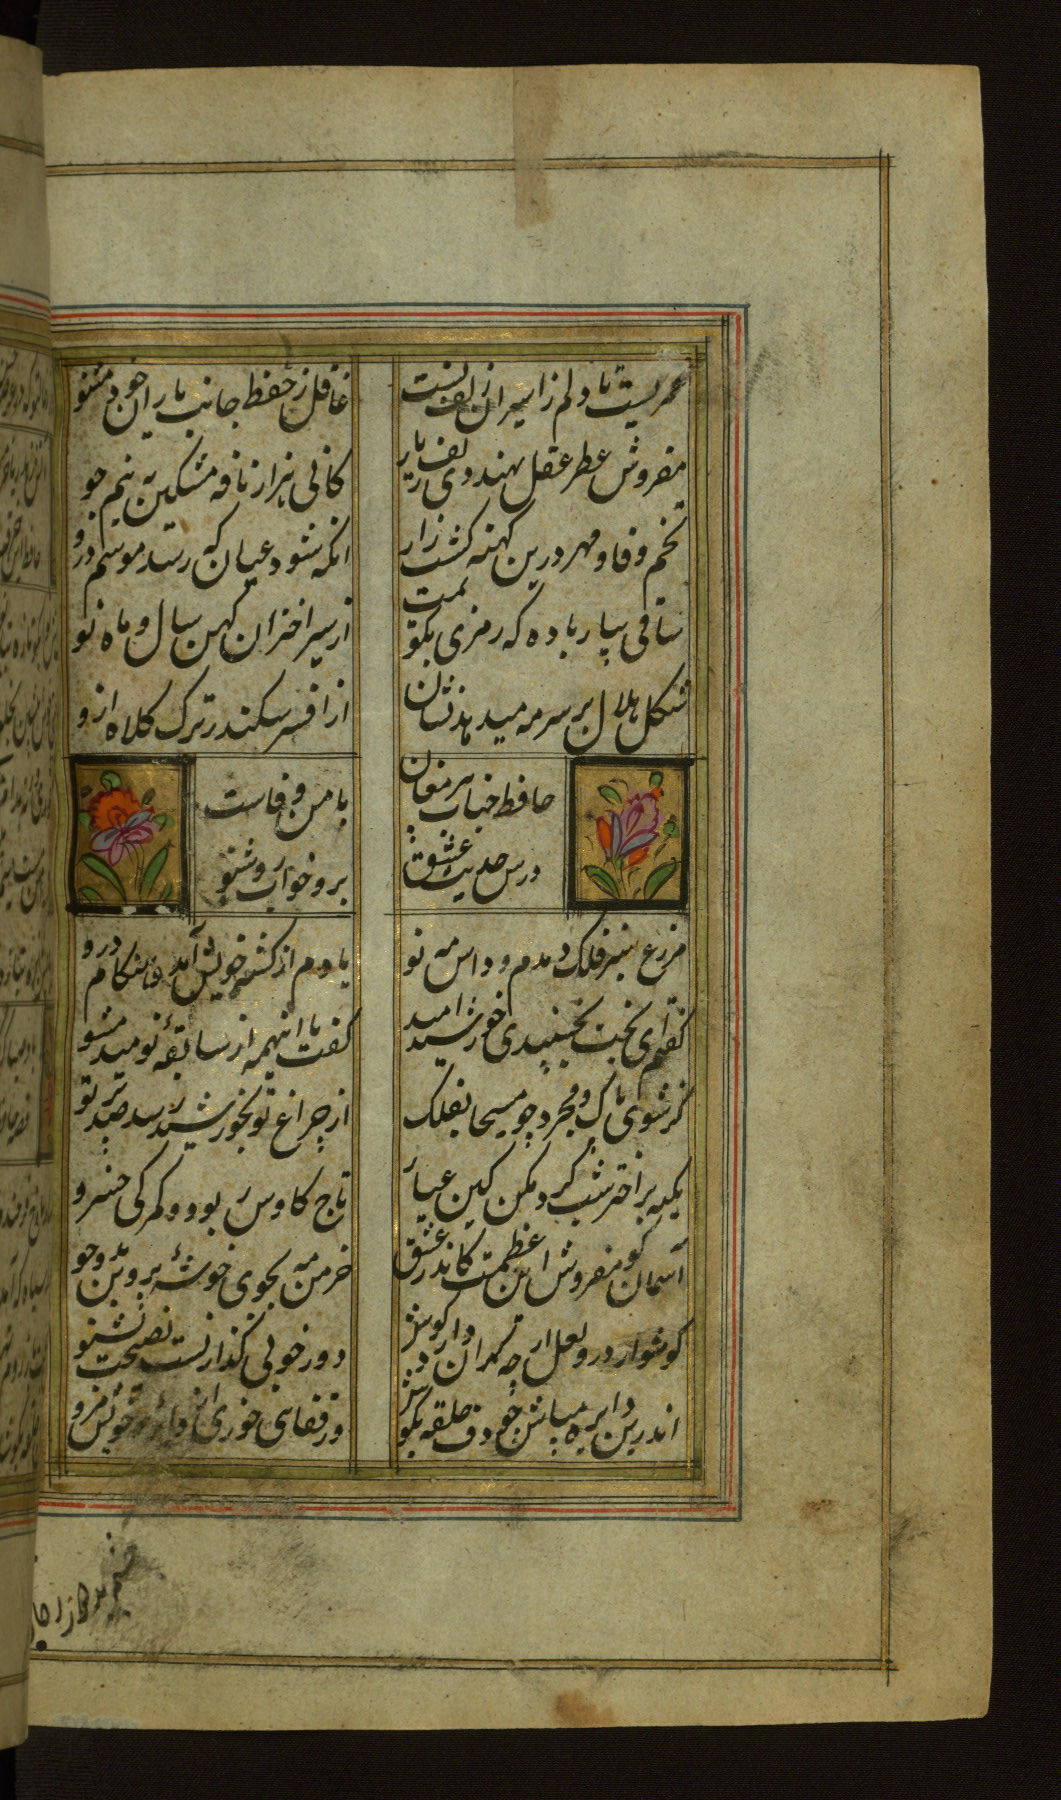 عمریست تا دلم ز اسیران زلف تست
غافل ز حفظ جانب یاران خود مشو
مفروش عطر عقل بهندوی زلف یار
کانجا هزار نافه مشکین به نیم جو
تخم وفا و مهر درین کهنه کشت زار
انکه شود عیان که رسد موسم درو
ساقی بیار باده که رمزی بگویمت
از سیر اختران کهن سال و ماه نو
شکل هلال بر سر مه میدهد نشان
از افسر سکندر ترک کلاه او
حافظ جناب پیر مغان
با من وفاست
درس حدیث عشق
برو خوان و شنو
مزرع سبز فلک دیدم و داس مه نو
یادم از کشته خویش آمد و هنگام درو
گفتم ای بخت بخسبیدی خورشید امید
گفت با اینهمه از سابقه نومید مشو
گر شوی پاک و مجرد چو مسیحا بفلک
از چراغ تو بخورشید رسد صد پرتو
تکیه بر اختر شب گرد مکن کین عیار
تاج کاوس ربود و کمر کی خسرو
آسمان کو مفروش این عظمت کاندر عشق
خرمن مه بجوی خوشه پروین بدو جو
گوشوار در و لعل ار چه گران دارد گوش
دور خوبی گذرانست نصیحت بشنو
اندرین دایره میباش چو دف حلقه بگوش
ور قفای خوری از دایره خویش مرو